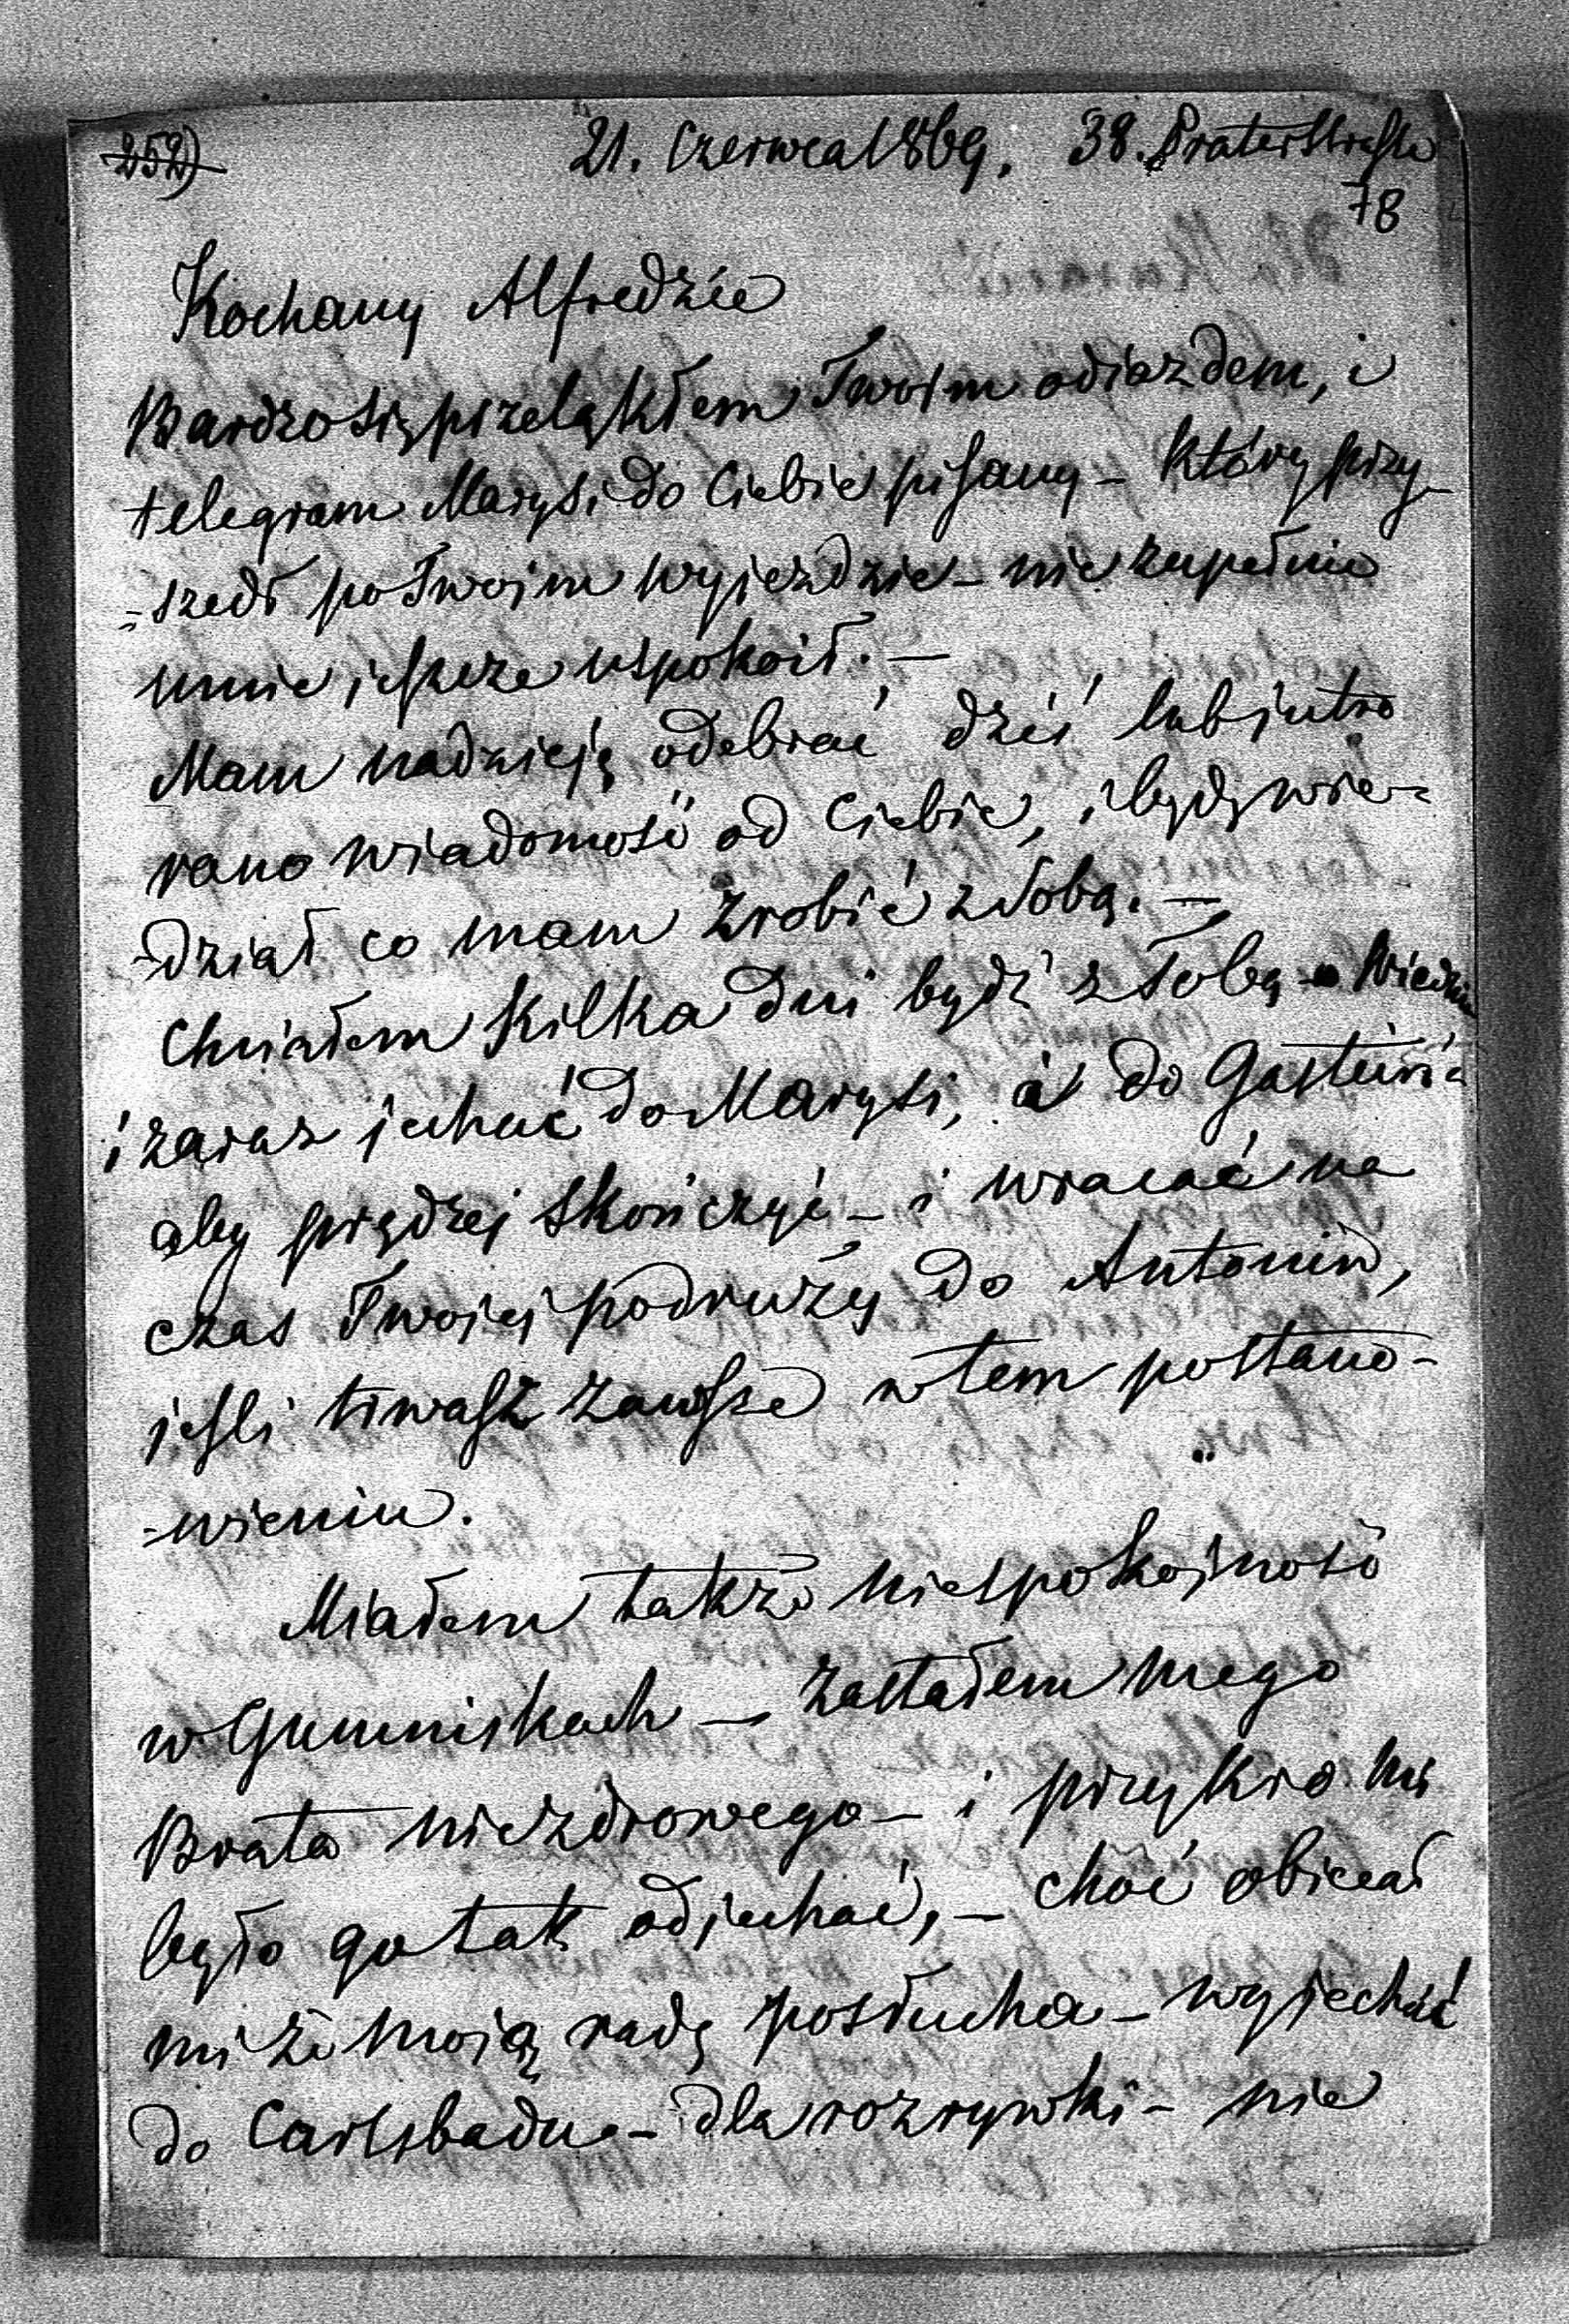 252)
21. Czerwca 1869. 38. Praterstraße
78
Kochany Alfredzie
Bardzo się przelękłem Twoim odiazdem, i
telegram Marysi do Ciebie pisany – który przy-
-szedł po Twoim wyjeździe – nie zupełnie
mnie jeszcze uspokoił. –
Mam nadzieję odebrać dziś lub jutro
rano wiadomość od Ciebie, i będę wie-
-dział co mam zrobić z sobą. –
Chciałem kilka dni będź z Tobą w Wiedniu
i zaraz jechać do Marysi, a do Gastein
aby prędzej skończyć – i wracać na
czas Twojej podruży do Antonin,
jeśli trwasz zawsze w tem postano-
-wieniu.
Miałem także niespokojność
w Gumniskach – zastałem mego
Brata niezdrowego – i przykro mi
było go tak odjechać, – choć obiecał
mi że moją radę posłucha – wyjechać
do Carlsbadu – dla rozrywki – nie